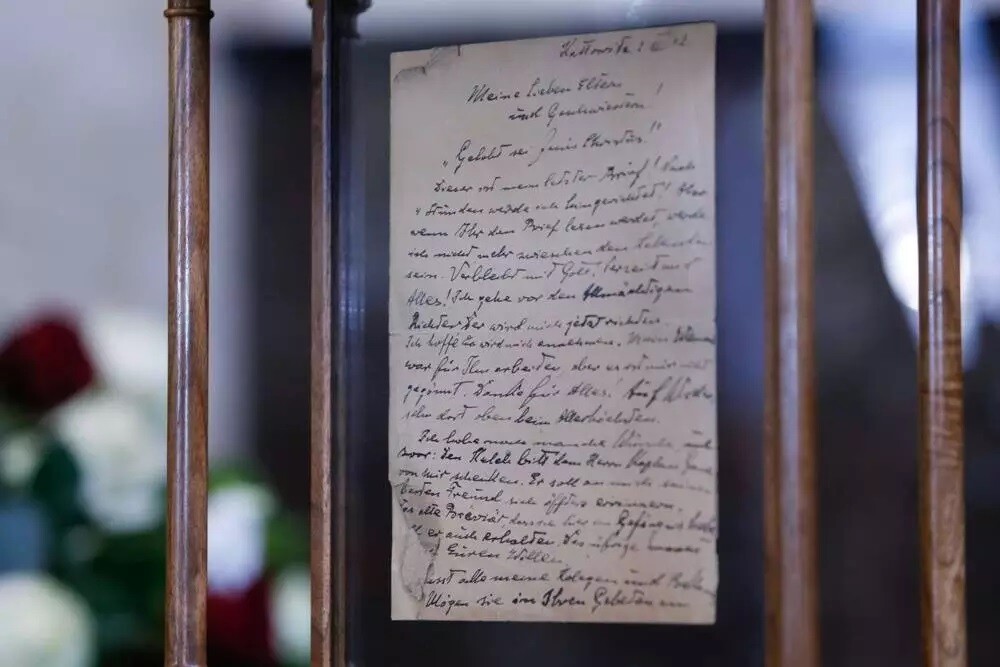 Kattowitz 2 XII 42
Meine Lieben Eltern
und Geschwistern!
"Gelobt sei Jesus Christus!"
Dieser ist mein letzter Brief! Nach
4 Stunden werde ich hingerichtet! Aber
wenn Ihr den Brief lesen werdet, werde
ich nicht mehr zwischen den Lebenden
sein. Verbleibt mit Gott! Verzeiht mir
Alles! Ich gehe vor den Allmächtigen
Richter. Der wird mich jetzt richten.
Ich hoffe Er wird mich annehmen. Mein
war für Ihn arbeiten, aber es ist mir nicht
gegönnt. Danke für Alles! Auf Wieder
sehn dort oben beim Allerhöchsten.
Ich habe noch manche Wünsche und
zwar: Den Kelch bitt dem Herrn Kaplan
von mir schenken. Er soll an mich seinen
besten Freund sich öfters erinnern.
Das alte Brevier, das sie hier im Gefängnis
er auch erhalten. Das übrige
Euren Willen
alle meine Kolegen und
Mögen sie in Ihren Gebeten an